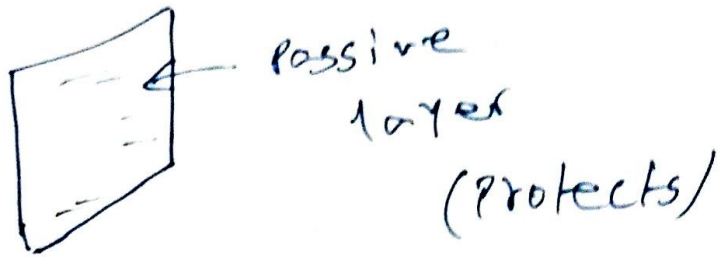 Passive
layer
(Protects)